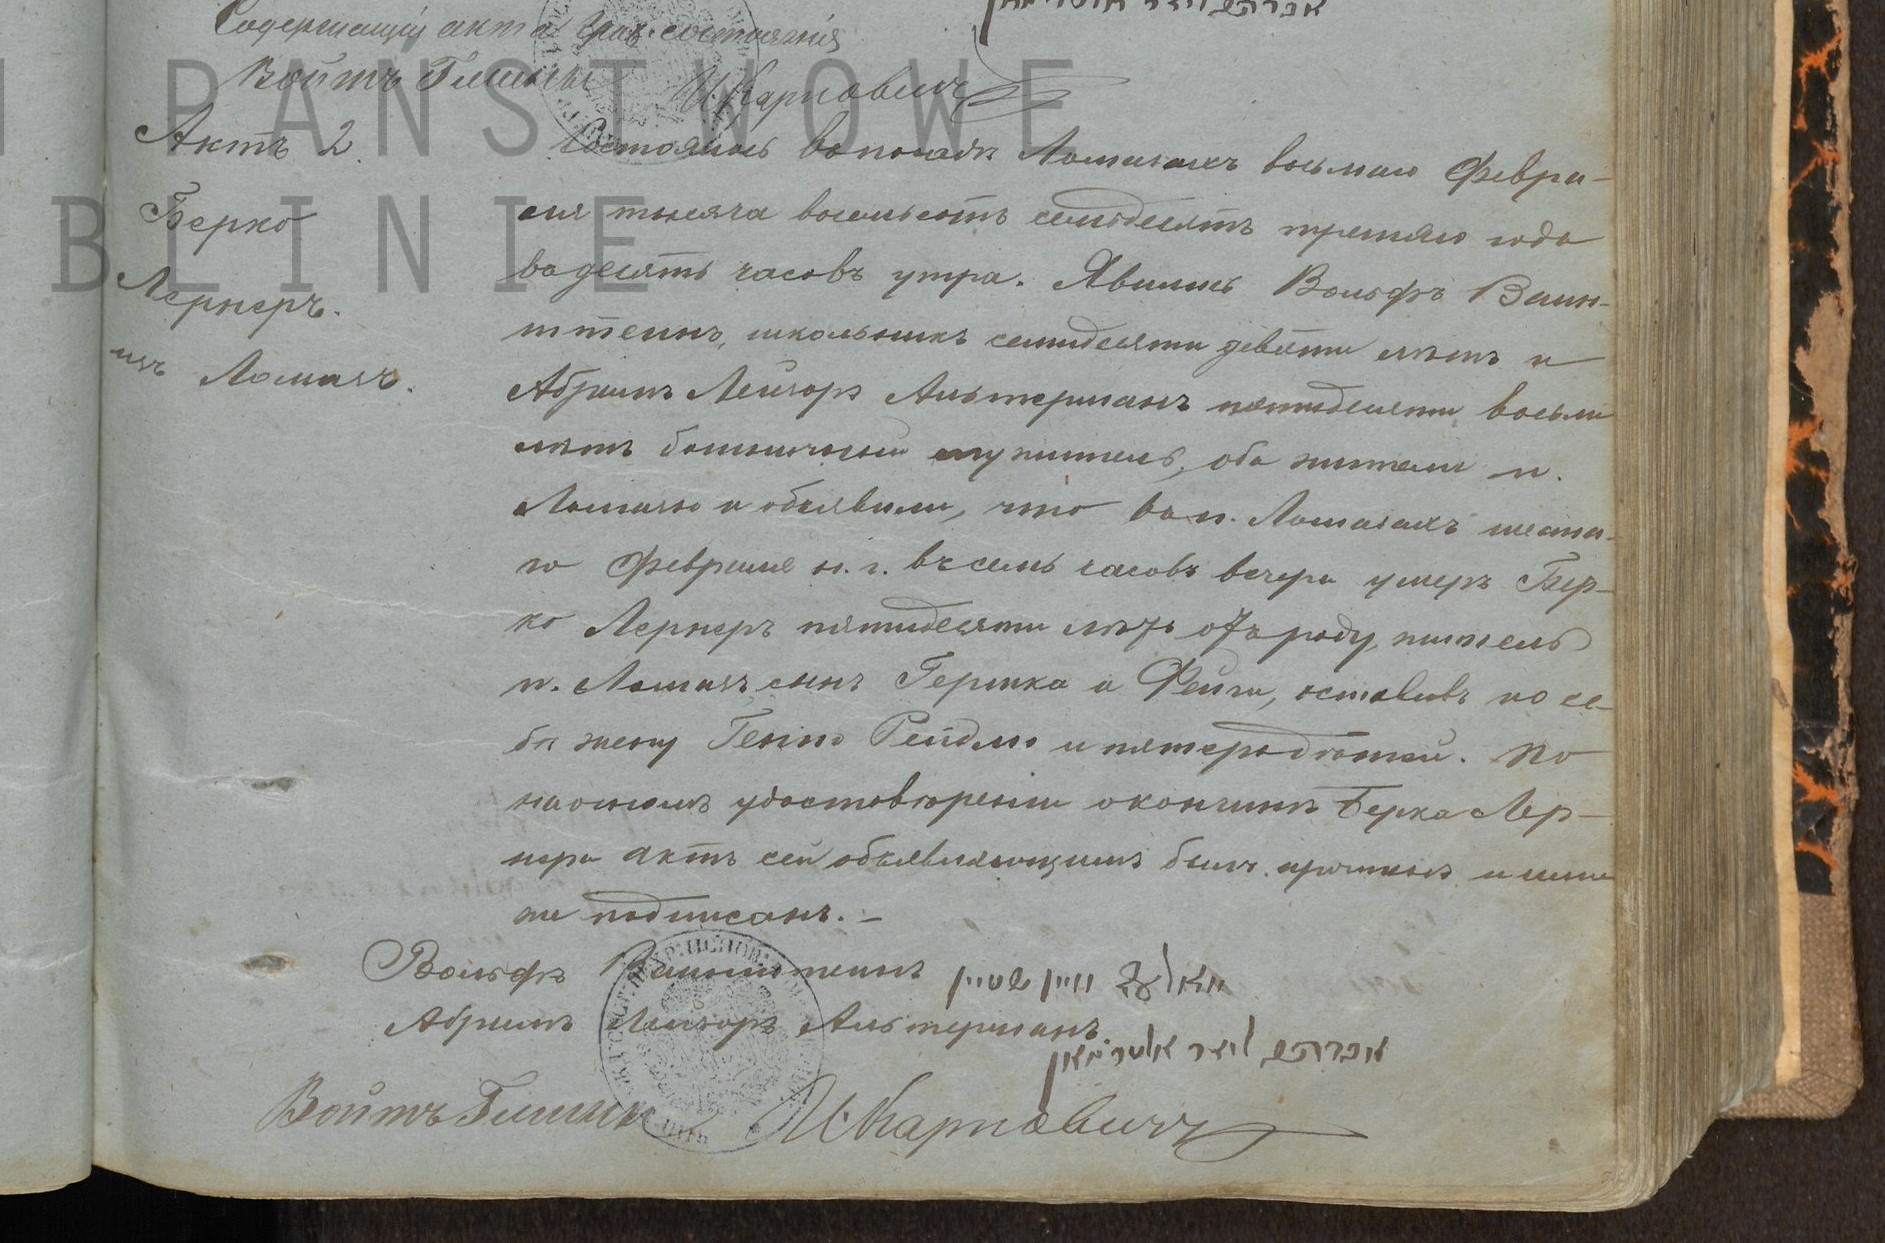 אברהם ליזר אלטרמאן
Содержащій акта граж. состоянія
Войтъ Гмины И. Карповичъ
PAŃSTWOWE
BLINIE
Актъ 2.
Берко
Лернеръ.
изъ Ломазъ.
Состоялось въ посадѣ Ломазахъ восьмаго Февра-
ля тысяча восемьсотъ семьдесятъ третьяго года
въ десять часовъ утра. Явились Вольфъ Ваин-
штеинъ, школьникъ семидесяти девяти лѣтъ и
Абрамъ Лейзоръ Альтерманъ пятидесяти восьми
лѣтъ больничный служитель, оба жители п.
Ломазы и объявили, что въ п. Ломазахъ шеста-
го Февраля н. г. въ семь часовъ вечера умеръ Бер-
ко Лернеръ пятидесяти лѣтъ отъ роду, житель
п. Ломазъ сынъ Гершка и Фейги, оставивъ по се-
бѣ жену Геню Рейдлю и пятеро дѣтей. По
наочномъ удостовѣреніи о кончинѣ Берка Лер-
нера актъ сей объявляющимъ былъ прочтенъ и ими
же подписанъ. –
Вольфъ Ваинштеинъ וואלף וויין שטיין
Абрамъ Лейзоръ Альтерманъ
אברהם ליזר אלטרמאן
Войтъ Гмины И. Карповичъ